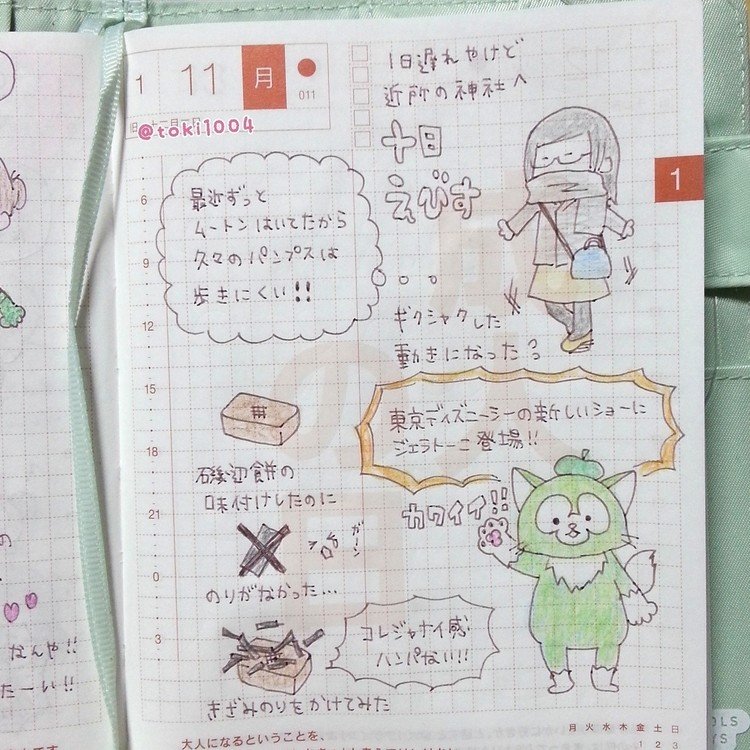 1
11
月
011
@toki1004
1日遅れやけど
近所の神社へ
十日
えびす
1
最近ずっと
ムートンはいてたから
久々のパンプスは
歩きにくい!!
ギクシャクした
動きになった
6
9
12
15
18
21
0
3
東京ディズニーシーの新しいショーに
ジェラトーニ登場!!
カワイイ!!
磯辺餅の
味付けしたのに
ガーン
のりがなかった…
コレジャナイ感
ハンパない!!
きざみのりをかけてみた
なんや!!
たーい!!
月火水木金土日
1
大人になるということを、